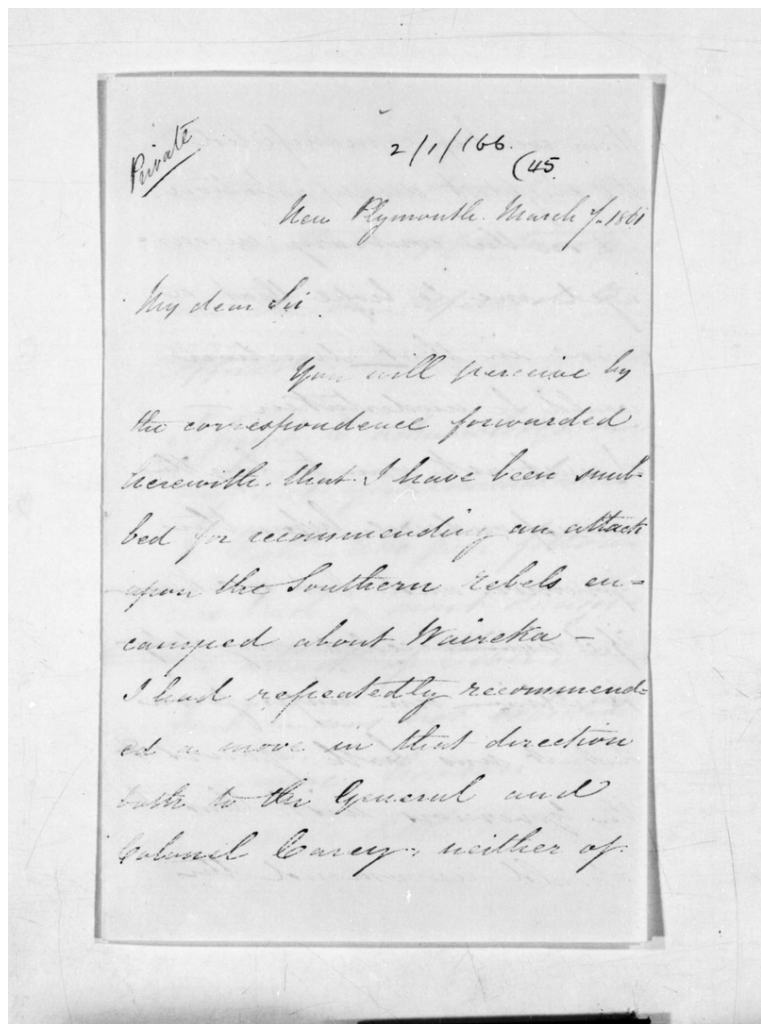 Private
2/1/166.
(45
New Plymouth. March 7/- 1861
My dear Sir.
You will perceive by
the correspondence forwarded
herewith. that. I have been snub-
bed for recommending an attack
upon the Southern rebels en=
camped about Waireka -
I had repeatedly recommend=
ed a move in that direction
both to the General and
Colonel Carey, neither of